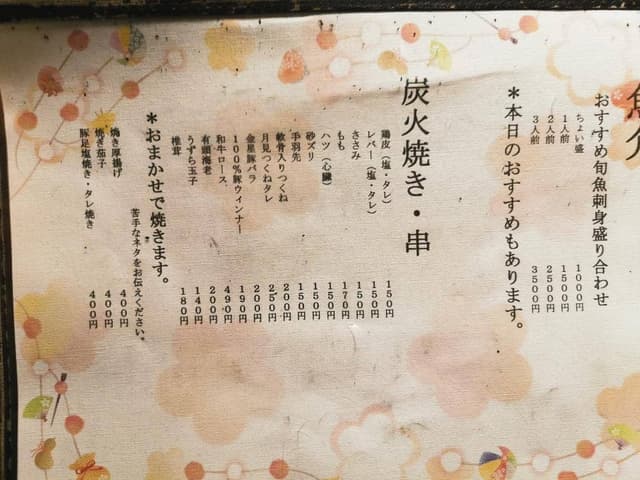 おすすめ旬魚刺身盛り合わせ
ちょい盛 1000円
1人前 1500円
2人前 2500円
3人前 3500円
＊本日のおすすめもあります。
炭火焼き・串
鶏皮（塩・タレ） 150円
レバー（塩・タレ） 150円
ささみ 150円
もも 170円
ハツ（心臓） 150円
砂ズリ 150円
手羽先 150円
軟骨入りつくね 200円
月見つくねタレ 250円
金星豚バラ 200円
100％豚ウィンナー 190円
和牛ロース 490円
有頭海老 200円
うずら玉子 140円
椎茸 180円
＊おまかせで焼きます。
苦手なネタをお伝えください。
焼き厚揚げ 400円
焼き茄子 400円
豚足塩焼き・タレ焼き 400円